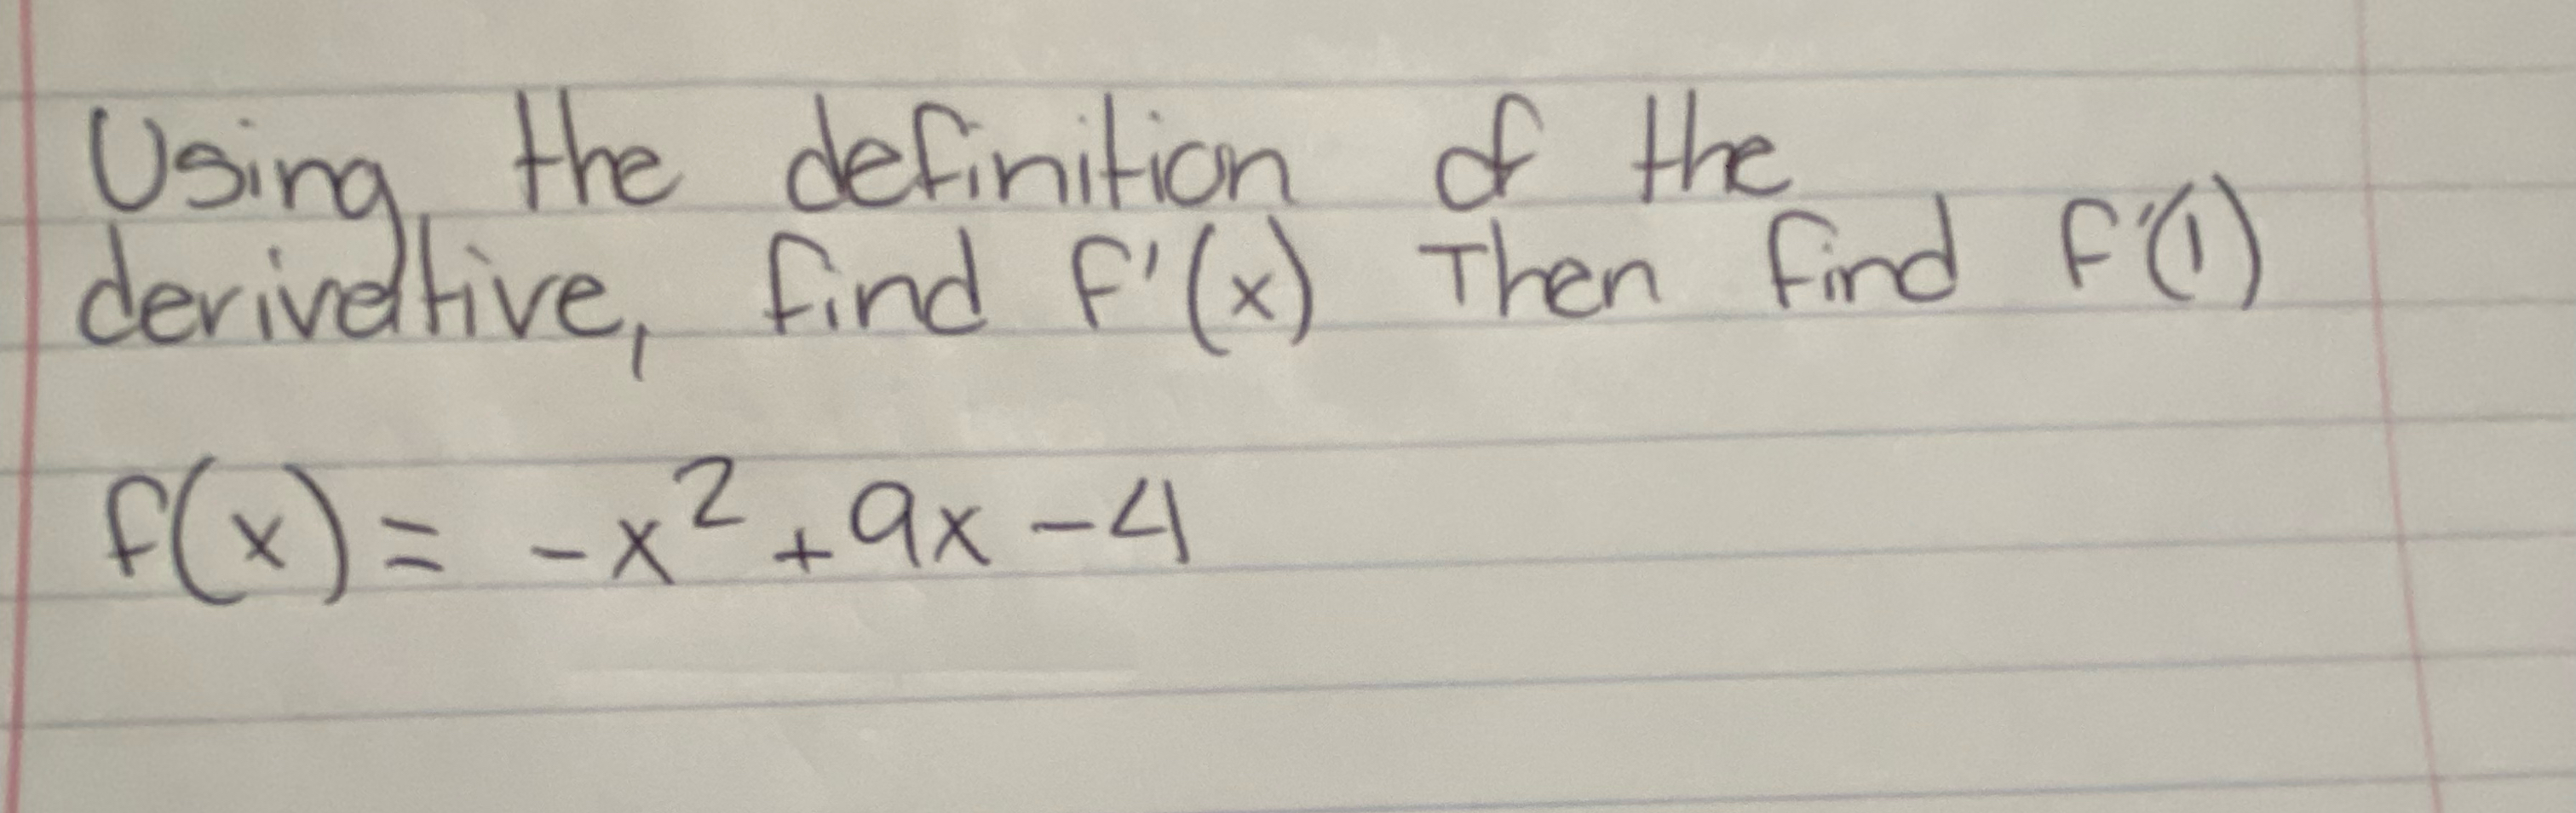 Using the definition of the
derivative, find f'(x) Then find f'(1)
f(x) = -x² + 9x - 4